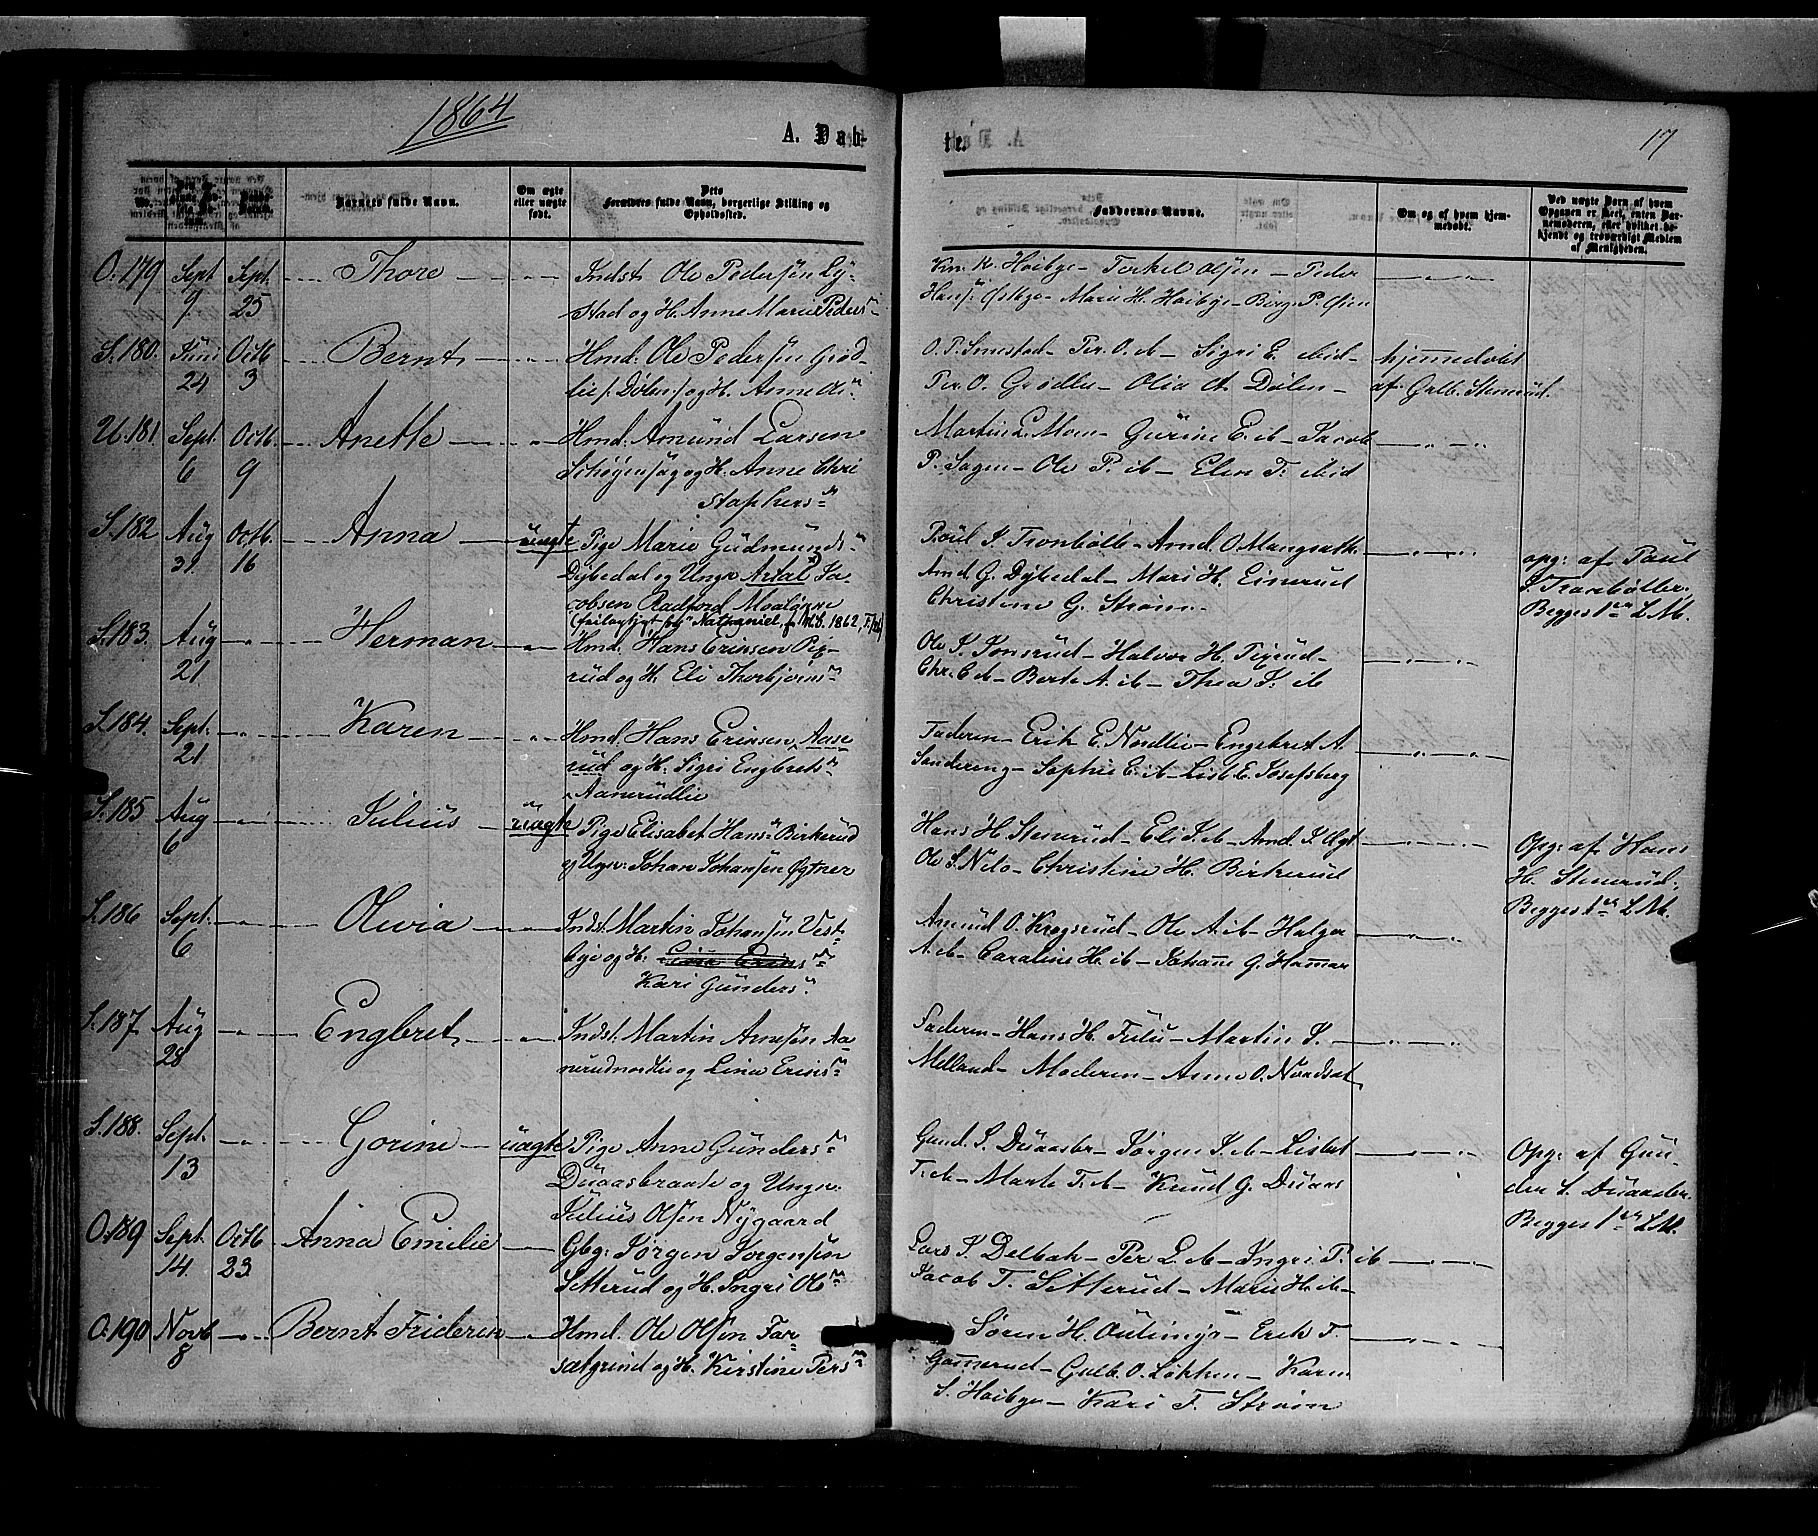 1864
A. Døb-
te.
17
No.
Barnets fulde Navn.
Om ægte
eller uægte
født.
Dets
Forældres fulde Navn, borgerlige Stilling og
Opholdssted.
Faddernes Navne.
Om og af hvem hjem-
medøbt.
Ved uægte Børn af hvem
Opgaven er skeet, enten Bar-
nemoderen, eller hvilket be-
kjendt og troværdigt Medlem
af Menigheden.
O. 179 Sept 9 Sept. 25 Thore
Indst Ole Pedersen Ly-
stad og H. Anne Marie Peders
Kn. K. Høibye - Terkel Olsen - Peder
Hans Østbye - Marie H. Høibye -
S. 180. Juni 24 Octb 3 Bernt
Hmd: Ole Pedersen Grød-
lie /: Dølen :/ og H. Anne
O. P. Smestad - Per. O. ib - Sigri E. ibid -
Per. O. Grødlie - Olia A. Dølen -
hjemmedøbt
af Gulb. Stenerud.
U. 181 Sept. 6 Octb. 9 Anette
Hmd: Amund Larsen
og H. Anne Chri
stophers
Martin L. Moen - Gurine E. ib - Jacob
P. Sagen - Ole P. ib - Elen T. ibid
S. 182 Aug 31 Octb. 16 Anna uægte
Pige Marie Gudmunds
Dybedal og Ungk Axtal Ja-
cobsen Radford
Poul J Tronbølle - Amd. O. Mangseth
Amd G. Dybedal - Mari H. Einerud
Christine G. Strøm -
opg: af Paul
J. Tronbøller.
Begges 1ste L. M.
S. 183. Aug 21 Herman
Hmd. Hans Ericksen Pix-
rud og H. Eli Thorbjørns
Ole J. Jonsrud - Halvor H. Pixrud -
Chr. E ib - Berte A. ib - Thea J. ib
S. 184. Sept. 21 Karen
Hmd Hans Ericksen Aase
rud og H. Sigri Engbrets
Aanerudlie
Faderen - Erik E. Nordlie - Engebret A.
Sandereng - Sophie E. ib - Lisb. E. Josefsberg
S. 185 Aug 6 Julius uægte
Pige Elisabet Hans Birkerud
og Ungk: Johan Johansen Øgtner
Hans H. Stenerud - Eli J. ib - Amd. J.
Ole S. Nilo - Christine H. Birkerud
Opg: af Hans
H. Stenerud.
Begges 1ste L. M.
S. 186 Sept. 6 Olivia
Indst. Martin Johansen Vest-
bye og H. Lina Ericks
Kari Gunders
Amund O. Krogsrud - Ole A. ib - Helge
A. ib - Caroline H. ib - Johane G. Hamar
S. 187. Aug 28 Engbret
Indst. Martin Arnesen Aa-
nerudnordlie og Lina Ericks
Faderen - Hans H. Fulu - Martin J.
Melland - Moderen - Anne O. Nordset
S. 188. Sept. 13 Gorine uægte
Pige Anne Gunders
Duaasbraate og Ungk:
Julius Olsen Nygaard
Gund. S. Duaasbr - Jørgen J. ib - Lisbet
T. ib - Marte T. ib - Knud G. Duaas
Opg: af Gun-
der S. Duaasbr.
Begges 1ste L. M.
O. 189 Sept. 14. Octb 23. Anna Emilie
Gbg: Jørgen Jørgensen
Setterud og H. Ingri Ols
Lars J. Delbak - Per L. ib - Ingri P. ib
Jacob T. Setterud - Marie H. ib -
O. 190 Novb 8 Bernt Friderik
Hmd. Ole Olsen Far-
sætgrind og H. Kirstine Pers
Søren H. - Erik T.
Gamerud - Gulb. O. Løkken - Karen
S. Høibye - Kari T. Strøm